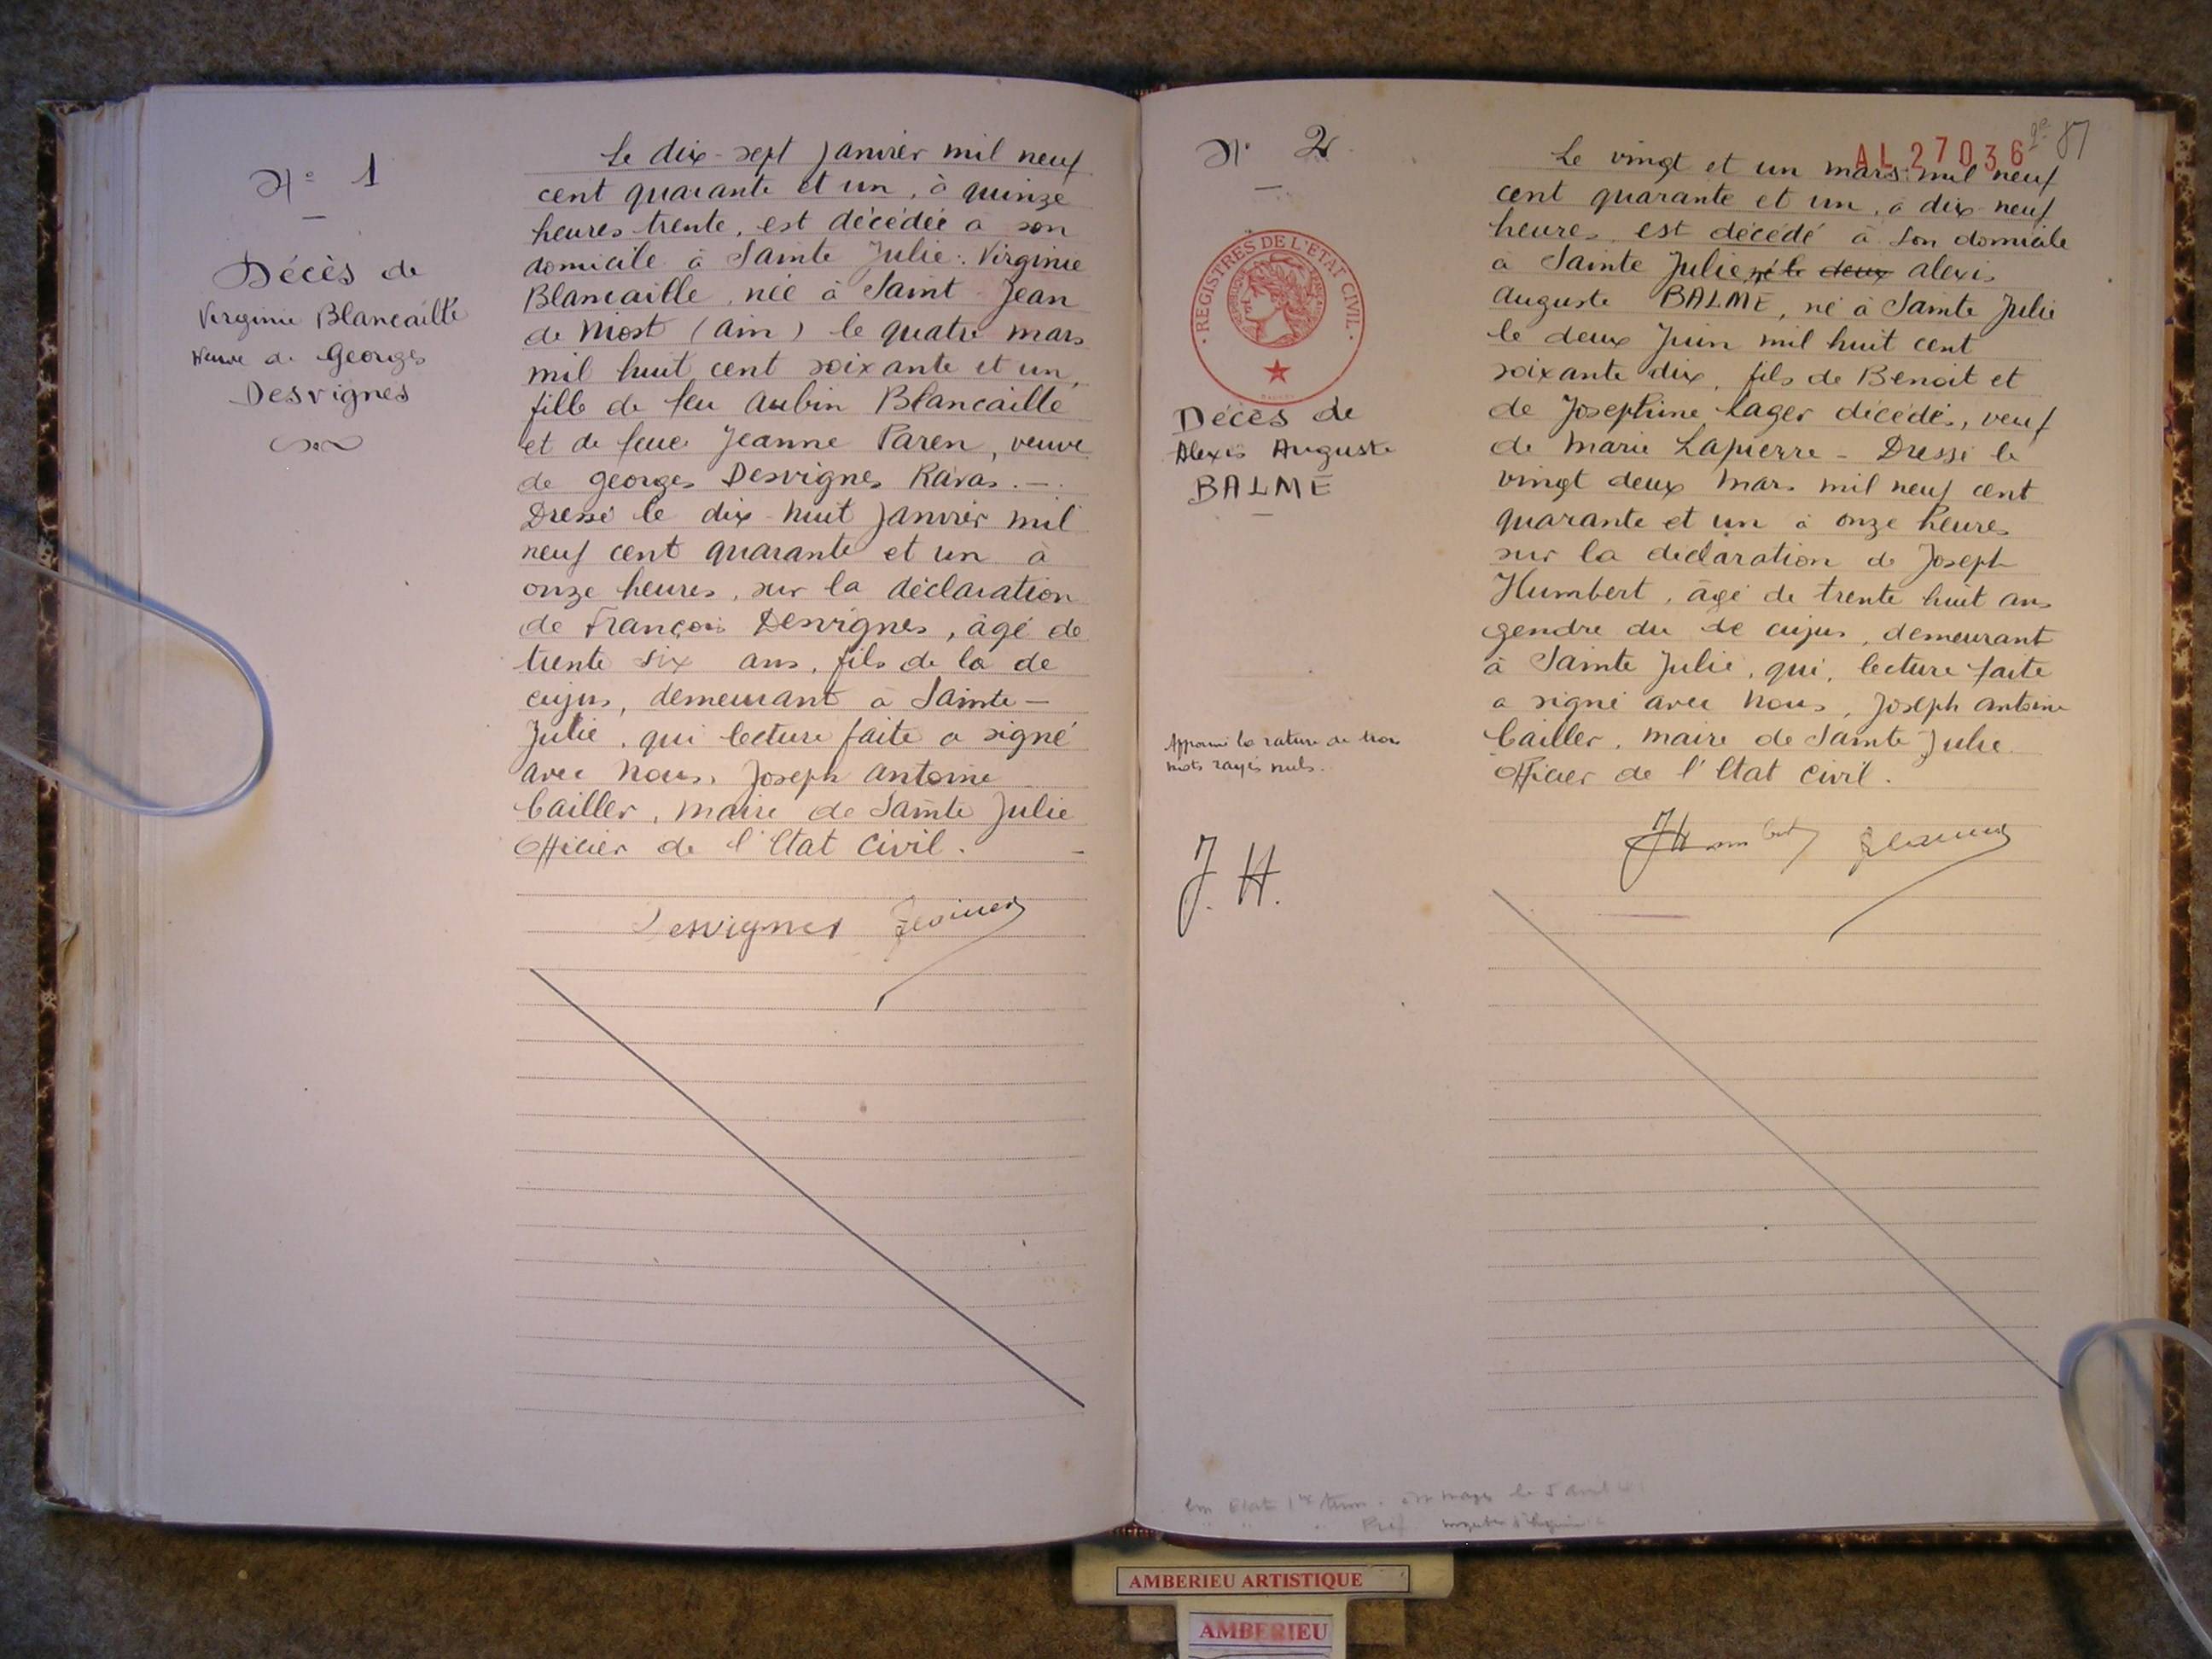 N° 1
Décès de
Virginie Blancaille
Veuve de Georges
Desvignes
Le dix-sept Janvier mil neuf
cent quarante et un, à quinze
heures trente, est décédée à son
domicile à Sainte Julie : Virginie
Blancaille, née à Saint-Jean
de Niost (Ain) le quatre mars
mil huit cent soixante et un,
fille de feu Aubin Blancaille
et de feue Jeanne Paren, veuve
de Georges Desvignes Ravas. —.
Dressé le dix-huit Janvier mil
neuf cent quarante et un à
onze heures, sur la déclaration
de François Desvignes, âgé de
trente six ans, fils de la de
cujus, demeurant à Sainte-
Julie, qui lecture faite a signé
avec Nous, Joseph Antoine
Cailler, maire de Sainte Julie
Officier de l'Etat Civil. -
Desvignes
N° 2
REGISTRES DE L'ETAT CIVIL
Décès de
Alexis Auguste
BALME
Approuvé la rature de trois
mots rayés nuls.
J. H.
AL 27036
87
Le vingt et un mars mil neuf
cent quarante et un, à dix-neuf
heures, est décédé à son domicile
à Sainte Julie né le deux Alexis
Auguste BALME, né à Sainte Julie
le deux Juin mil huit cent
soixante dix, fils de Benoit et
de Josephine Lager décédés, veuf
de Marie Lapierre - Dressé le
vingt deux Mars mil neuf cent
quarante et un à onze heures
sur la déclaration de Joseph
Humbert, âgé de trente huit ans
gendre du de cujus, demeurant
à Sainte Julie, qui, lecture faite
a signé avec Nous, Joseph Antoine
Cailler, maire de Sainte Julie
Officier de l'Etat Civil.
JHumbert
AMBERIEU ARTISTIQUE
AMBERIEU